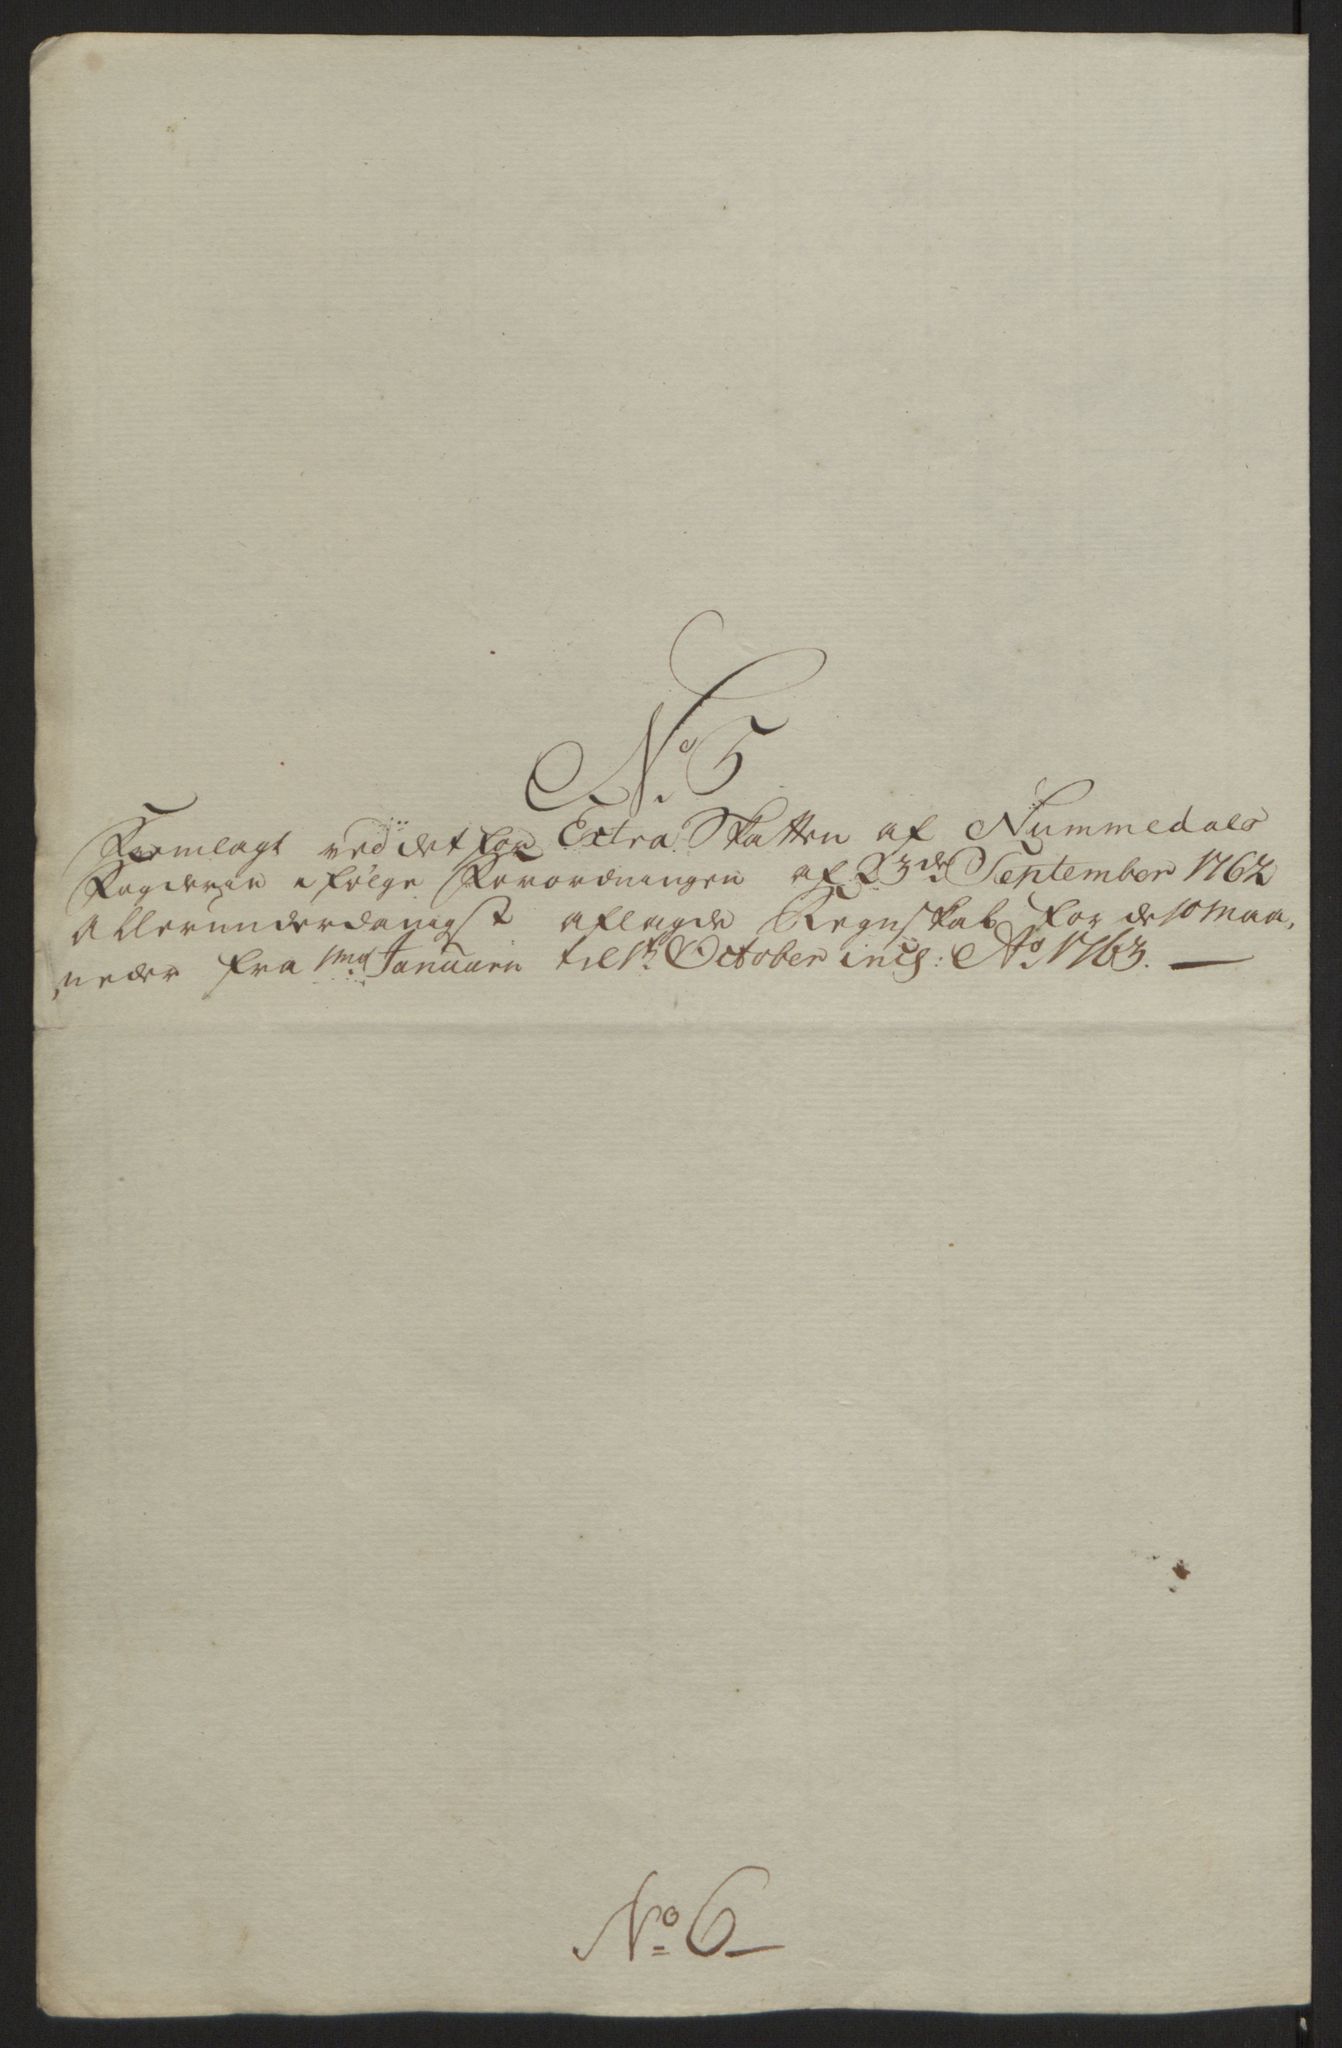 No 5
Fremlagt ved det for Extra Skatten af Nummedals
Fogderie i følge Forordningen af 23de September 1762
Allerunderdanigst aflagde Regnskab for de 10 Maa,
neder fra 1ma Januarii til October incl: Ao 1763. —
No 6